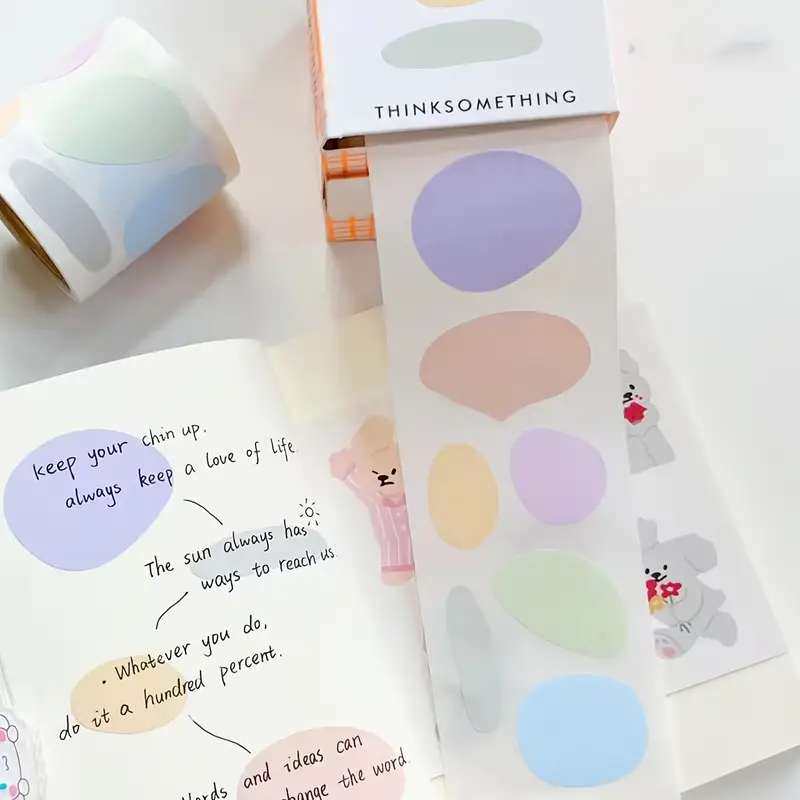 THINKSOMETHING
keep your chin up.
always keep a love of life
The sun always has
ways to reach us.
· Whatever you do,
do it a hundred percent.
Words and ideas can
change the word.